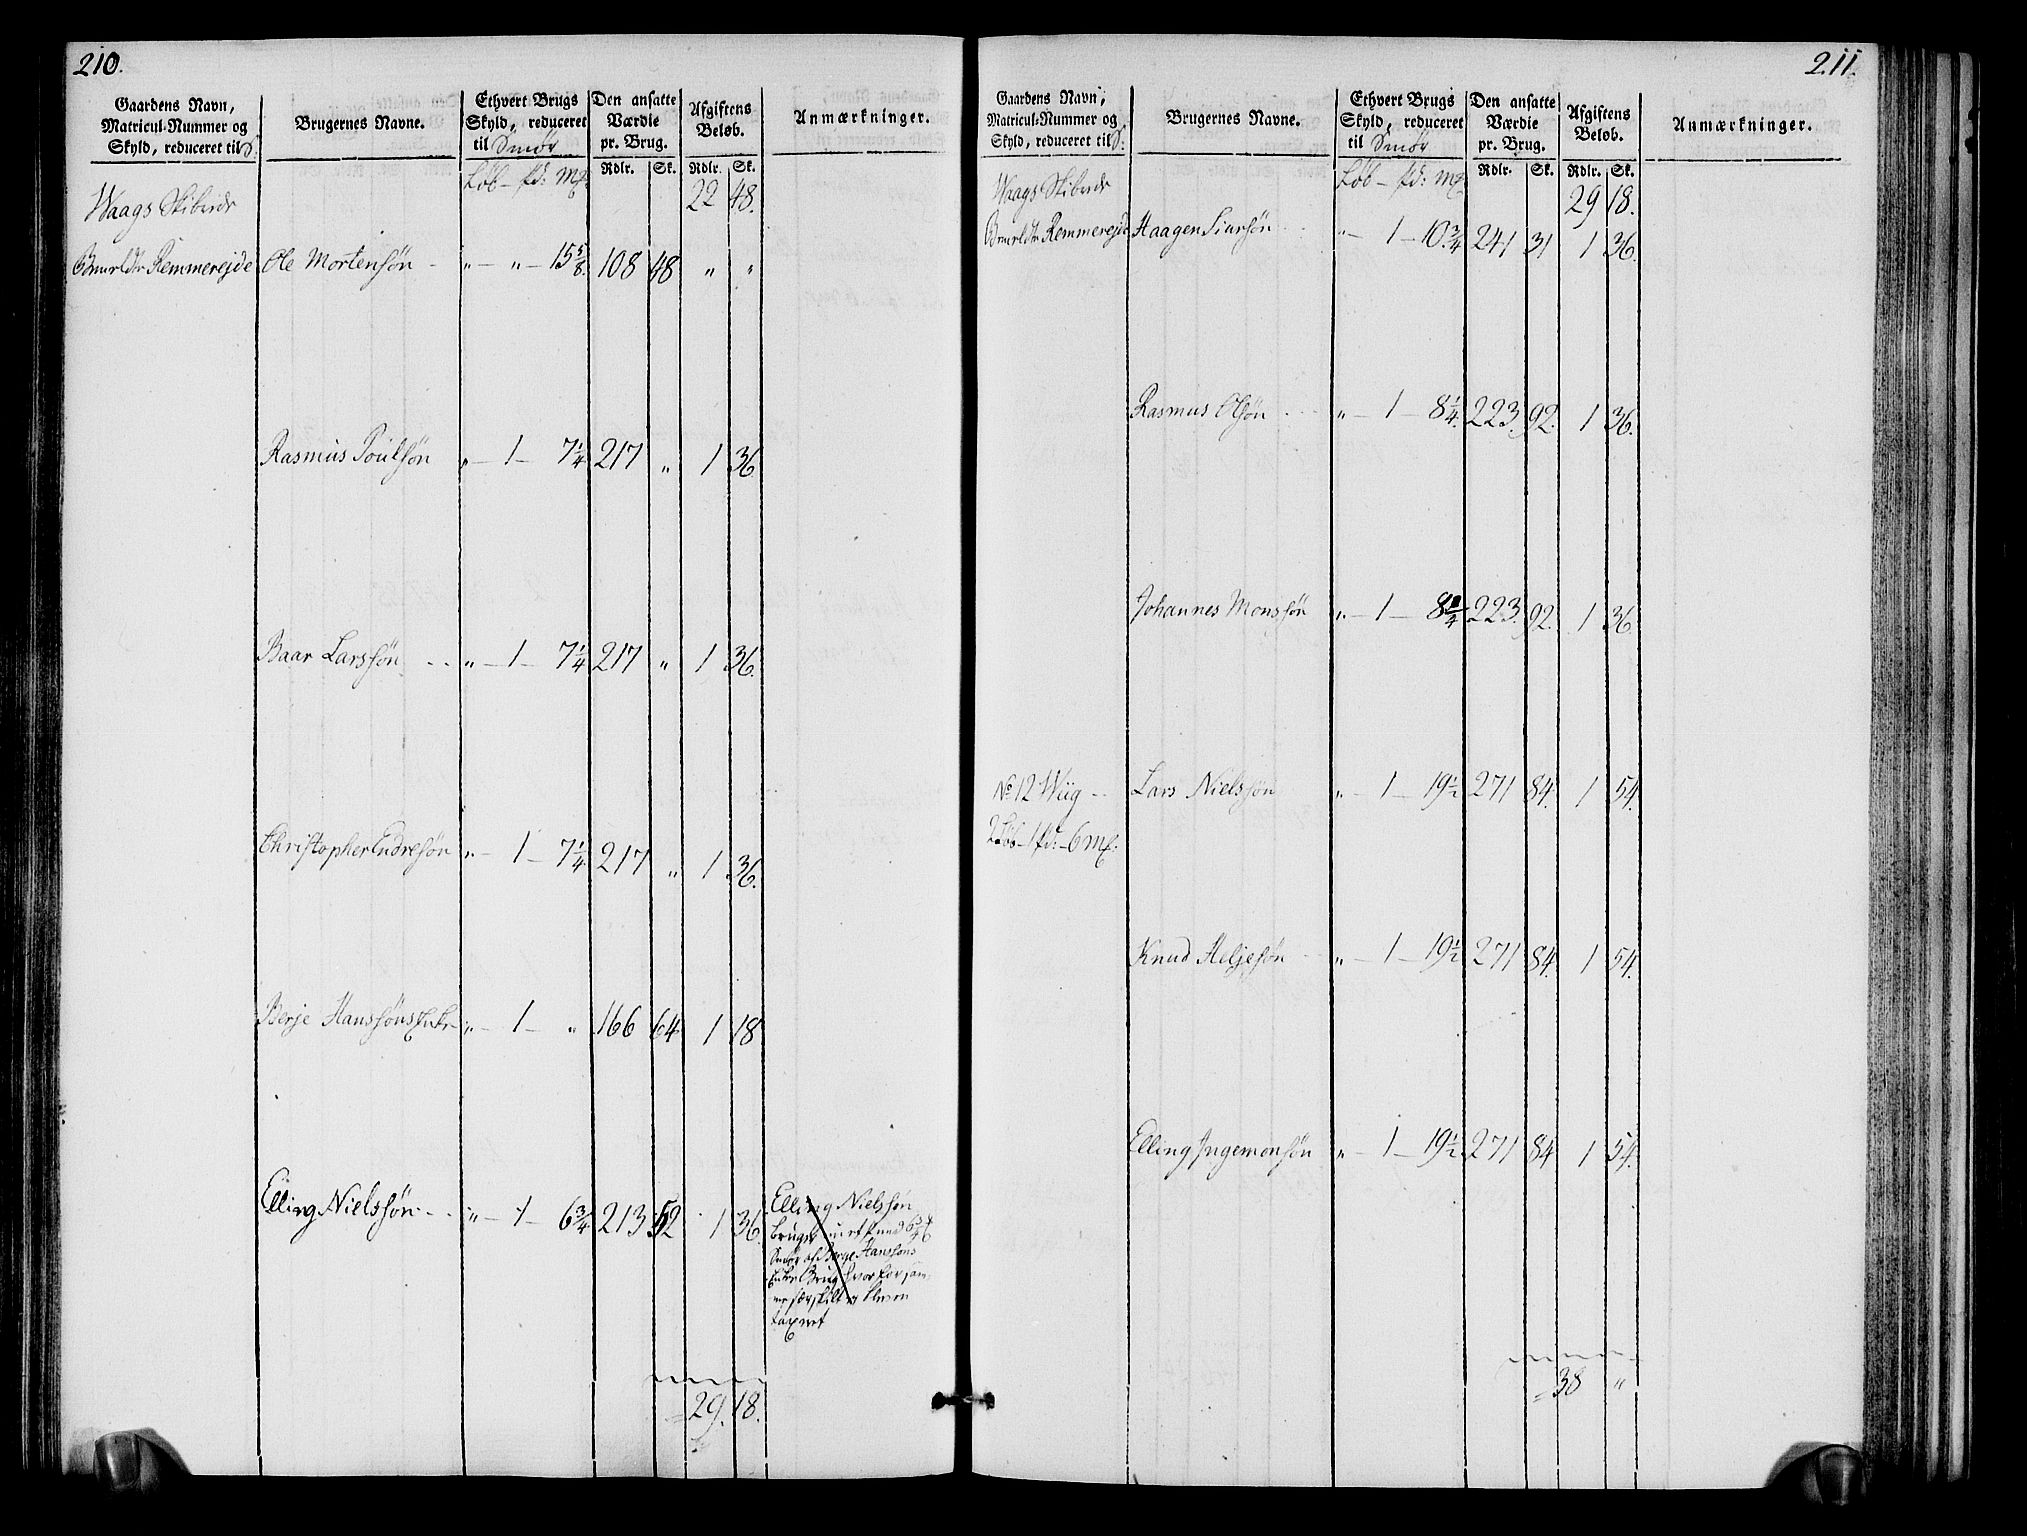 210.
Gaardens Navn, Matricul-Nummer og Skyld, reduceret til S:
Brugernes Navne.
Ethvert Brugs Skyld, reduceret til Smør
Den ansatte Værdie pr. Brug.
Afgiftens Beløb.
Anmærkninger.
Løb — pd: Mk Rdlr. Sk. Rdlr. Sk.
Waags Skibrede 22 48.
Remmerejde Ole Mortensøn „ — „ — 15 5/8 108 48 „ „
Rasmus Poulsøn „ — 1 — 7 1/4 217 „ 1 36.
Baar Larssøn „ — 1 — 7 1/4 217 „ 1 36.
Christopher Endresøn „ — 1 — 7 1/4 217 „ 1 36.
Berje Hanssøns Enke „ — 1 — „ 166 64 1 18
Elling Nielssøn „ — 1 — 6 3/4 213 52 1 36.
Elling Nielssøn
bruger 6 3/4
Smør af Berge Hanssøns
Enke Brug hvorfor
taxeret
29. 18.
211.
Gaardens Navn, Matricul-Nummer og Skyld, reduceret til S:
Brugernes Navne.
Ethvert Brugs Skyld, reduceret til Smør
Den ansatte Værdie pr. Brug.
Afgiftens Beløb.
Anmærkninger.
Løb — pd: Mk Rdlr. Sk. Rdlr. Sk.
Waags Skibrede 29 18.
Remmerejde Haagen Siursøn „ — 1 — 10 3/4 241 31 1 36.
Rasmus Olsøn „ — 1 — 8 1/4 223. 92. 1 36.
Johannes Monssøn „ — 1 — 8 1/4 223. 92. 1 36.
No 12 Wiig Lars Nielssøn „ — 1 — 19 1/2 271 84. 1 54.
2 Løb — 1 pd: — 6 Mk:
Knud Heljesøn „ — 1 — 19 1/2 271 84. 1 54.
Elling Ingemonsøn „ — 1 — 19 1/2 271 84 1 54.
38 „